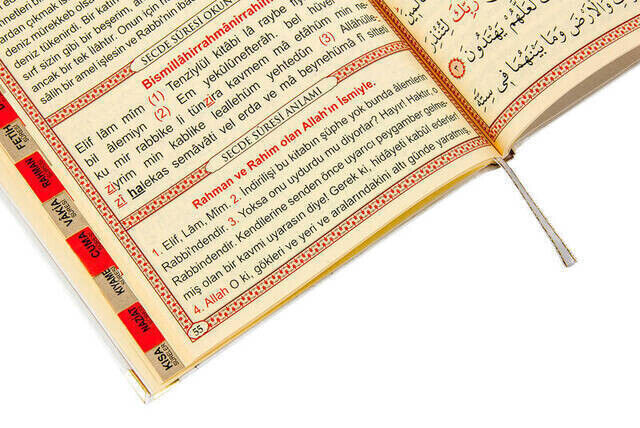 deniz mürekkep olsa
deniz tükenirdi. Bir katına
sırf sizin gibi bir beşerim, an
ancak bir tek ilahtır. Onun için h
sâlih bir amel işlesin ve Rabb'ın ibad
SECDE SÛRESİ OKUN
Bismillâhirrahmânirrahîm
Elif lâm mîm (1) Tenziylül kitâbi lâ raybe
bil âlemiyn (2) Em yekûlûnefterâh. bel hüve
ku mir rabbike li tünzira kavmem mâ etâhüm min ne
ziyrim min kablike leallehüm yehtedûn (3) Allâhülle-
zî halekas semâvâti vel erda ve mâ beynehümâ fî sitteti
SECDE SÛRESİ ANLAMI
Rahman ve Rahim olan Allah'ın İsmiyle.
1. Elif, Lâm, Mîm. 2. İndirilişi bu kitabın şüphe yok bunda âlemlerin
Rabbi'ndendir. 3. Yoksa onu uydurdu mu diyorlar? Hayır! Haktır, o
Rabbindendir. Kendilerine senden önce uyarıcı peygamber gelme-
miş olan bir kavmi uyarasın diye! Gerek ki, hidâyeti kabûl ederler!
4. Allah O ki, gökleri ve yeri ve aralarındakini altı günde yaratmış,
55
رَبِّكَ لِتُنْذِرَ
لَعَلَّهُمْ يَهْتَدُونَ
وَالْاَرْضَ وَمَا بَيْنَهُمَا فِي سِتَّةِ
FETİH
SURESİ
RAHMAN
VAKIA
SURESİ
CUMA
KIYAME
NAZİAT
KISA
SURELER